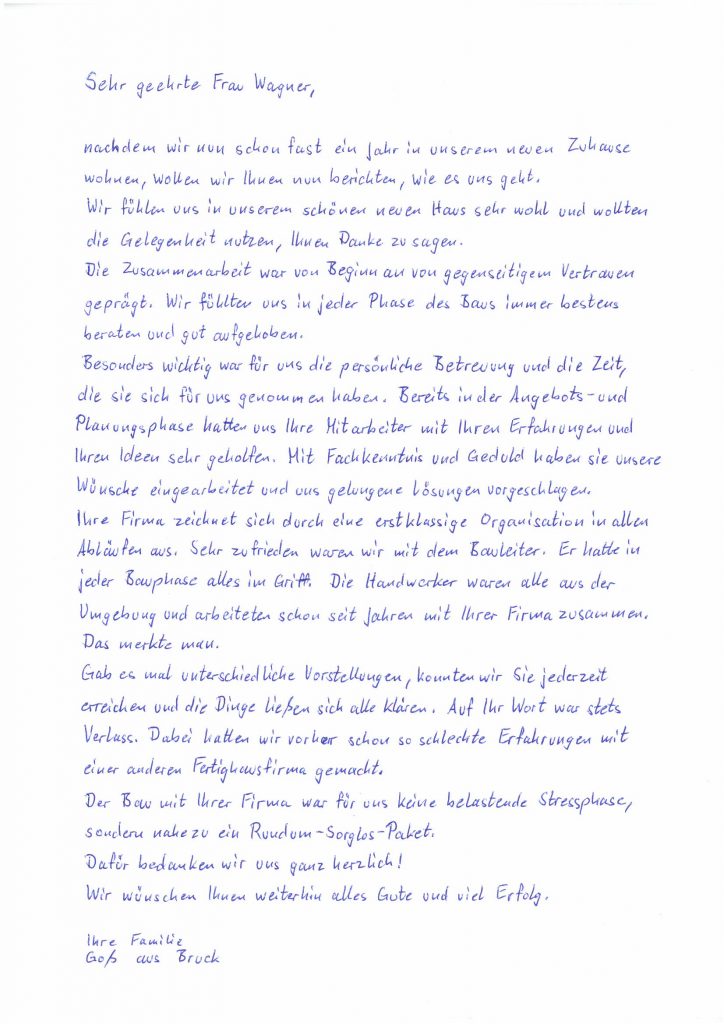 Sehr geehrte Frau Wagner,
nachdem wir nun schon fast ein Jahr in unserem neuen Zuhause
wohnen, wollen wir Ihnen nun berichten, wie es uns geht.
Wir fühlen uns in unserem schönen neuen Haus sehr wohl und wollten
die Gelegenheit nutzen, Ihnen Danke zu sagen.
Die Zusammenarbeit war von Beginn an von gegenseitigem Vertrauen
geprägt. Wir fühlten uns in jeder Phase des Baus immer bestens
beraten und gut aufgehoben.
Besonders wichtig war für uns die persönliche Betreuung und die Zeit,
die sie sich für uns genommen haben. Bereits in der Angebots- und
Planungsphase hatten uns Ihre Mitarbeiter mit Ihren Erfahrungen und
Ihren Ideen sehr geholfen. Mit Fachkenntnis und Geduld haben sie unsere
Wünsche eingearbeitet und uns gelungene Lösungen vorgeschlagen.
Ihre Firma zeichnet sich durch eine erstklassige Organisation in allen
Abläufen aus. Sehr zufrieden waren wir mit dem Bauleiter. Er hatte in
jeder Bauphase alles im Griff. Die Handwerker waren alle aus der
Umgebung und arbeiteten schon seit Jahren mit Ihrer Firma zusammen.
Das merkte man.
Gab es mal unterschiedliche Vorstellungen, konnten wir Sie jederzeit
erreichen und die Dinge ließen sich alle klären. Auf Ihr Wort war stets
Verlass. Dabei hatten wir vorher schon so schlechte Erfahrungen mit
einer anderen Fertighausfirma gemacht.
Der Bau mit Ihrer Firma war für uns keine belastende Stressphase,
sondern nahezu ein Rundum-Sorglos-Paket.
Dafür bedanken wir uns ganz herzlich!
Wir wünschen Ihnen weiterhin alles Gute und viel Erfolg.
Ihre Familie
Goß aus Bruck